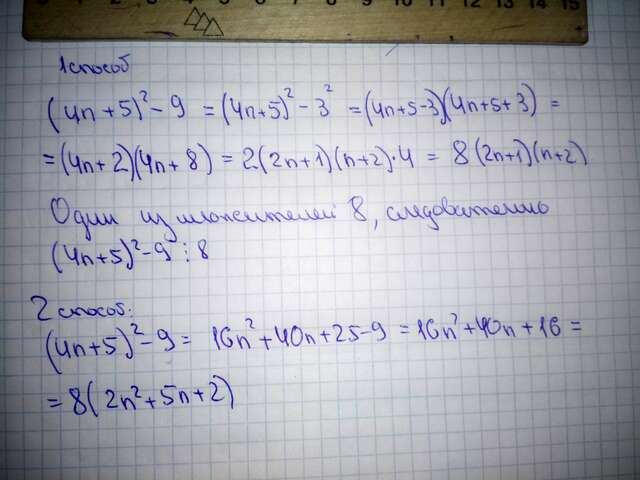 4 5 6 7 8 9 10 11 12 13 14 15
1 способ
(4n+5)²-9 = (4n+5)²-3² = (4n+5-3)(4n+5+3) =
=(4n+2)(4n+8) = 2(2n+1)(n+2)·4 = 8(2n+1)(n+2)
Один из множителей 8, следовательно
(4n+5)²-9⋮8
2 способ:
(4n+5)²-9= 16n²+40n+25-9 = 16n²+40n+16 =
=8(2n²+5n+2)